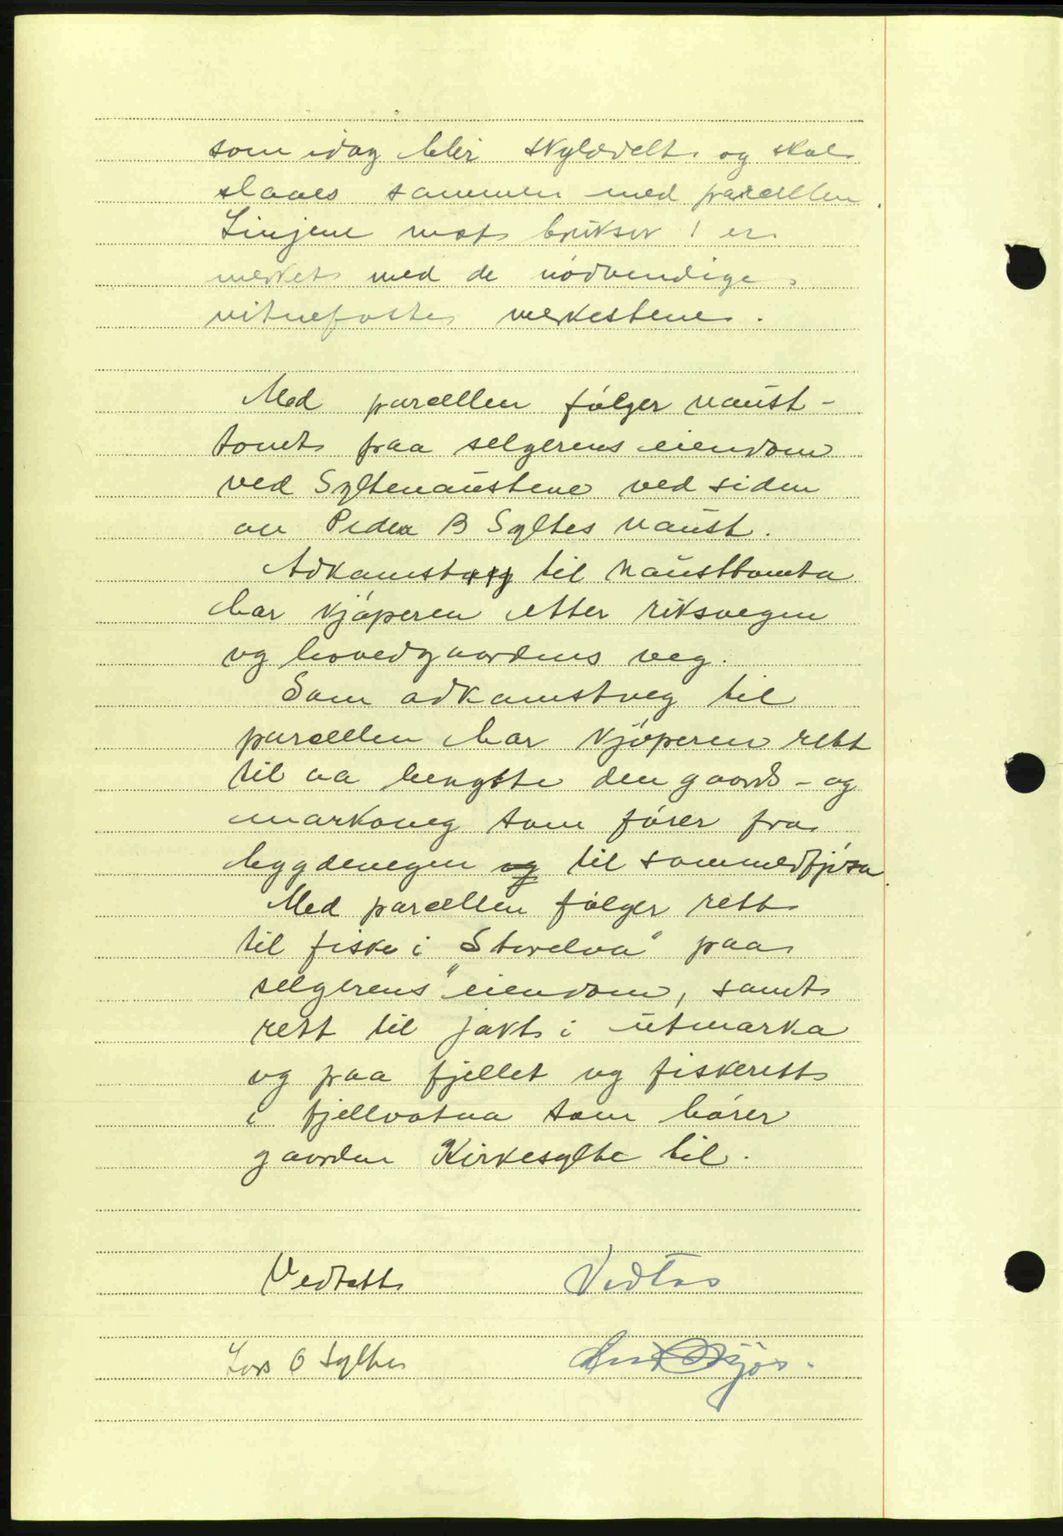 som idag blir skylddelt og skal
slaaes sammen med parcellen.
Linjene mot bruksnr 1 er
merket med de nödvendige
vitnefaste merkestene.
Med parcellen fölger naust-
tomt paa selgerens eiendom
ved Syltenaustene ved siden
av Peder B Syltes naust.
Adkomstveg til nausttomta
har kjöperen etter riksvegen
og hovedgaardens veg.
Som adkomstveg til
parcellen har kjöperen rett
til aa benytte den gaards- og
markaveg som förer fra
bygdevegen og til sommerfjösa
Med parcellen fölger rett
til fiske i "Storelva" paa
selgerens eiendom, samt
rett til jakt i utmarka
og paa fjellet og fiskerett
i fjellvatna som hörer
gaarden Kirkesylte til.
Vedtatt Vedtas
Lars O Sylte